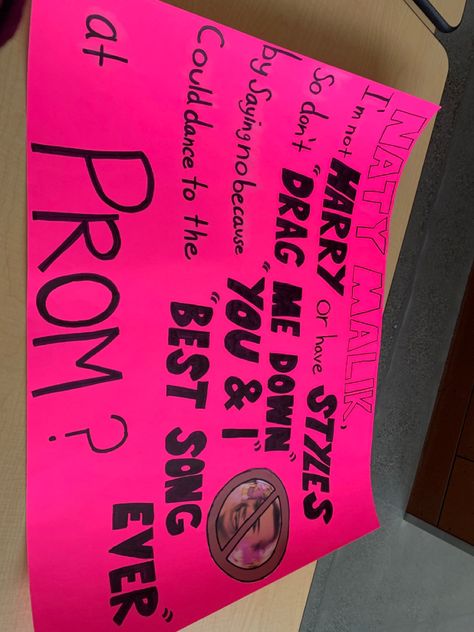 NATY MALIK,
I'm not HARRY or have STYLES
So don't "DRAG ME DOWN"
by saying no because "YOU & I"
Could dance to the "BEST SONG EVER"
at PROM?